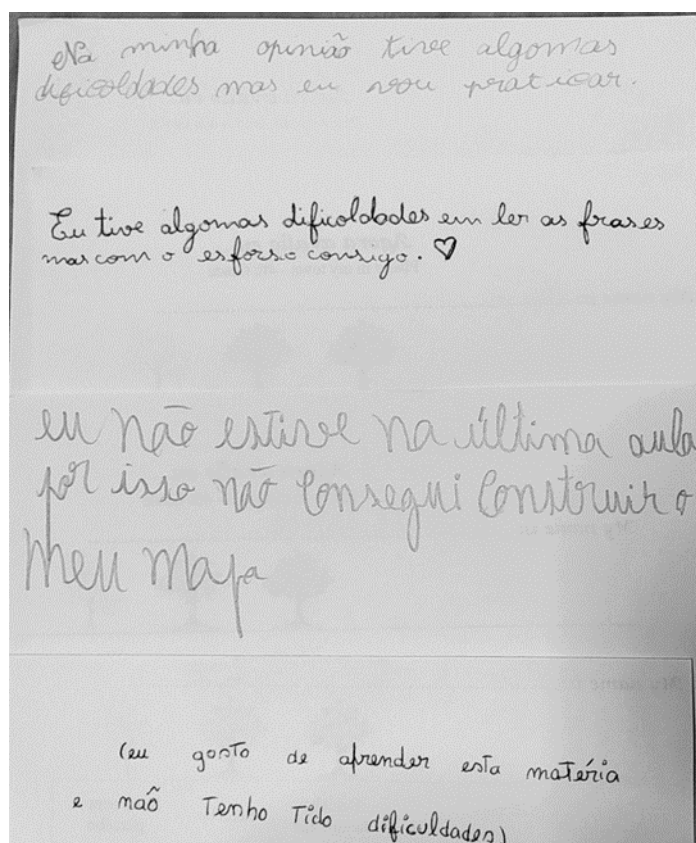 Na minha opinião tive algomas
dificoldades mas eu vou praticar.
Eu tive algomas dificoldades em ler as frases
mas com o esforso consigo. ♡
eu não estive na última aula
por isso não consegui construir o
meu mapa
(eu gosto de aprender esta matéria
e não Tenho Tido dificuldades)